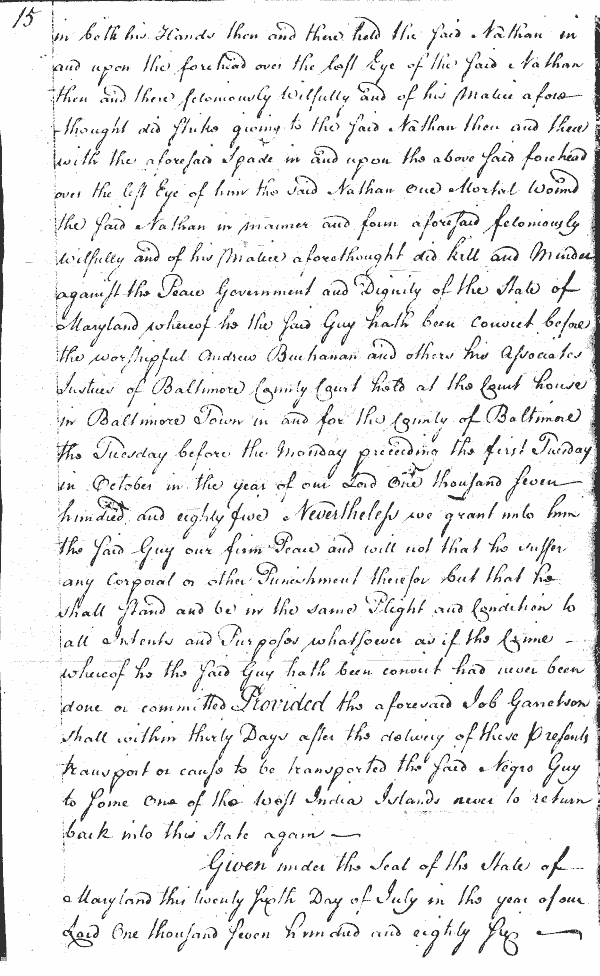 15
in both his Hands then and there held the said Nathan in
and upon the forehead over the left Eye of the said Nathan
then and there feloniously wilfully and of his Malice afore
thought did strike giving to the said Nathan then and there
with the aforesaid Spade in and upon the above said forehead
over the left Eye of him the said Nathan One Mortal Wound
the said Nathan in manner and form aforesaid feloniously
wilfully and of his Malice aforethought did kill and Murder
against the Peace Government and Dignity of the State of
Maryland whereof he the said Guy hath been convict before
the worshipful Andrew Buchanan and others his Associates
Justices of Baltimore County Court held at the Court house
in Baltimore Town in and for the County of Baltimore
the Tuesday before the Monday preceeding the first Tuesday
in October in the year of our Lord One thousand seven
hundred and eighty five Nevertheless we grant unto him
the said Guy our firm Peace and will not that he suffer
any Corporal or other Punishment therefor but that he
shall stand and be in the same Plight and Condition to
all Intents and Purposes whatsoever as if the Crime
whereof he the said Guy hath been convict had never been
done or committed Provided the aforesaid Job Garretson
shall within thirty Days after the delivery of these Presents
transport or cause to be transported the said Negro Guy
to some One of the West India Islands never to return
back into this State again —
Given under the Seal of the State of
Maryland this twenty sixth Day of July in the year of our
Lord One thousand seven hundred and eighty Six —